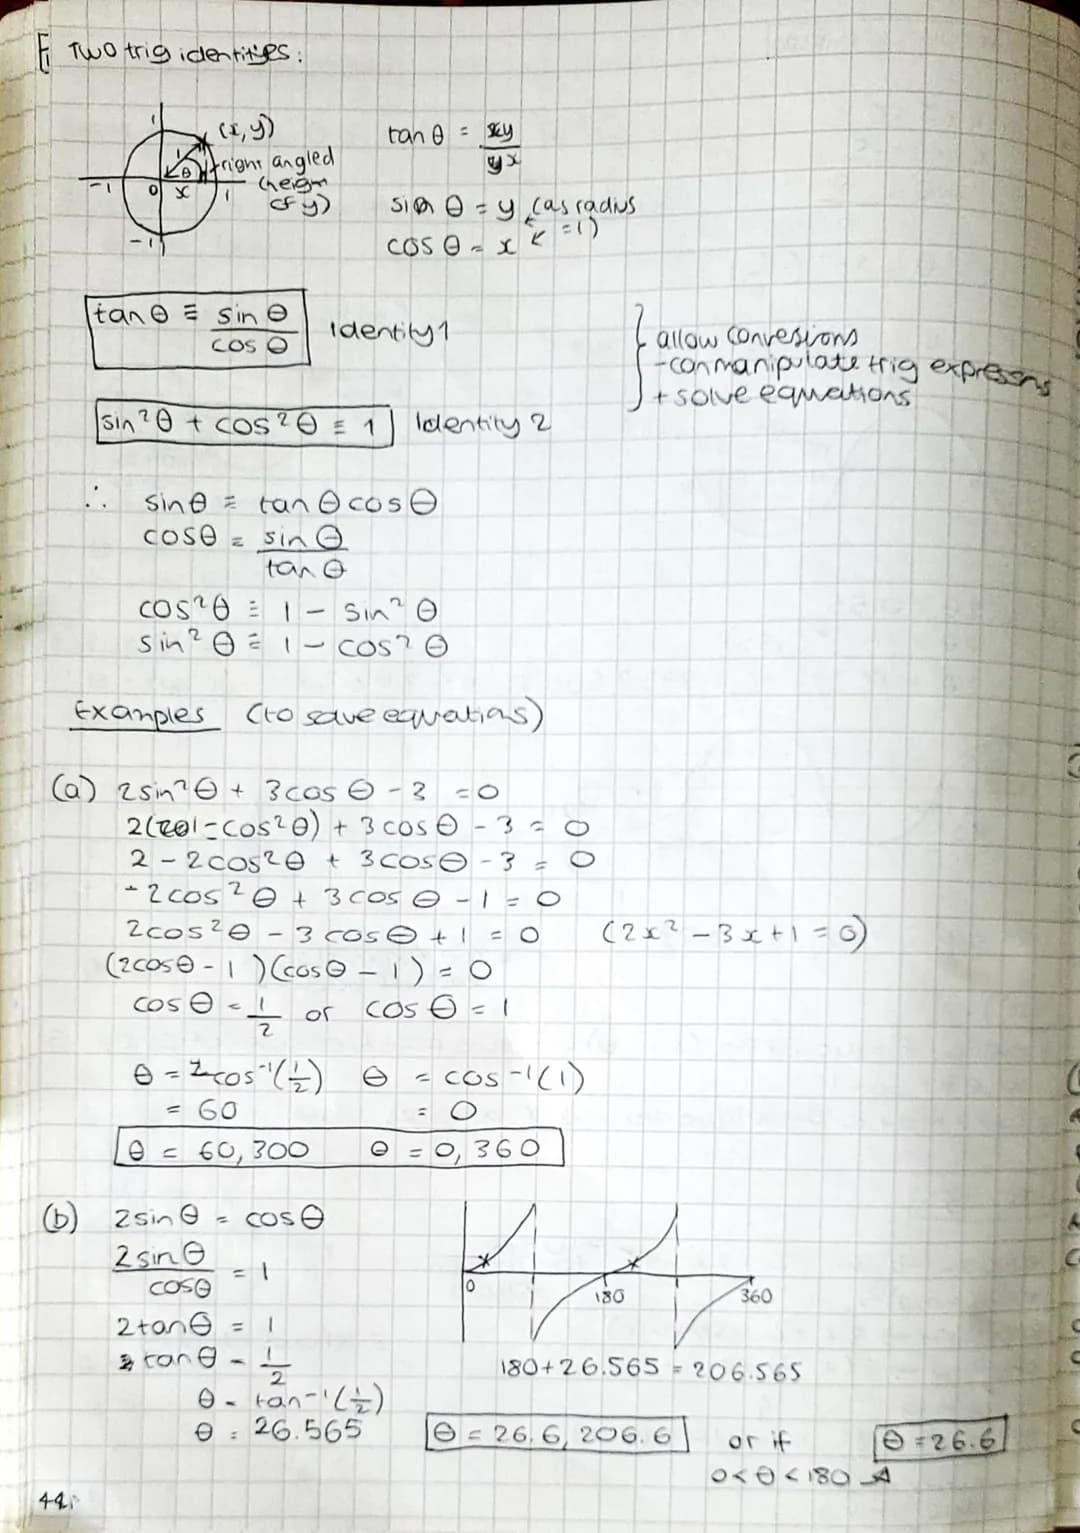 Two trig identityes:
(x, y)
right angled
(heigh
of y)
1
1
θ
-1 0 x 1
-1
tan θ = y/x
sin θ = y (as radius
cos θ = x = 1)
tan θ ≡ sin θ/cos θ Identity 1
sin²θ + cos²θ ≡ 1 Identity 2
allow convesions
- can manipulate trig expresens
+ solve equations
∴ sin θ ≡ tan θ cos θ
cos θ = sin θ/tan θ
cos²θ ≡ 1 - sin²θ
sin²θ ≡ 1 - cos²θ
Examples (to solve equations)
(a) 2sin²θ + 3cos θ - 3 = 0
2(1 - cos²θ) + 3cos θ - 3 = 0
2 - 2cos²θ + 3cos θ - 3 = 0
-2cos²θ + 3cos θ - 1 = 0
2cos²θ - 3cos θ + 1 = 0 (2x² - 3x + 1 = 0)
(2cos θ - 1)(cos θ - 1) = 0
cos θ = 1/2 or cos θ = 1
θ = cos⁻¹(1/2) θ = cos⁻¹(1)
= 60 = 0
θ = 60, 300 θ = 0, 360
(b) 2sin θ = cos θ
2sin θ/cos θ = 1
2tan θ = 1
tan θ = 1/2
θ = tan⁻¹(1/2)
θ = 26.565
0 180 360
180 + 26.565 = 206.565
θ = 26.6, 206.6 or if θ = 26.6
0 < θ < 180